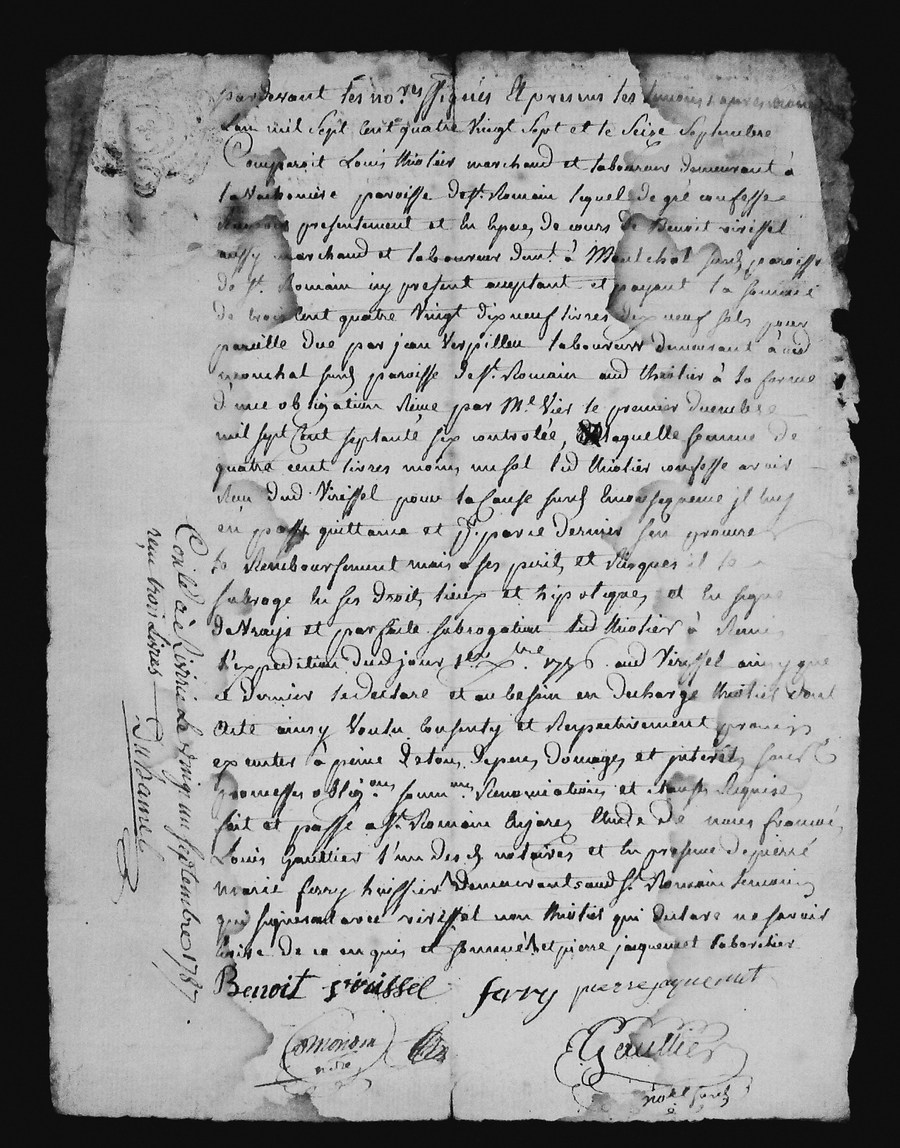 pardevant les no.res ssignés Et presens les temoins apres
Lan mil Sept Cent quatre Vingt Sept et le Seize Septembre
Comparoit Louis thiolier marchand et laboureur demeurant à
paroisse de St. Romain lequel de gré confesse
presentement et En Especes de cours de Benoit virissel
aussy marchand et laboureur demt. à Montchal susd. paroisse
de St. Romain icy present acceptant et payant la Somme
de trois Cent quatre Vingt dix neuf livres dix neuf sols pour
pareille due par jean Verpilleu laboureur demeurant aud
monchal susd. paroisse de St. Romain aud thiolier à la forme
d'une obligation Reçue par Me. Vier le premier decembre
mil sept Cent septante six controlée, laquelle somme de
quatre cent livres moins un sol led thiolier confesse avoir
Reçu dud. Virissel pour la Cause susd. En consequence jl luy
en passe quittance et
le Remboursement mais a ses perils et Risques et le
subroge En ses droits lieux et hipoteques, et En signe
de Vraye et parfaite subrogation led thiolier à Remis
l'expedition dudjour 1er Xbre 1776. aud Virissel ainsy que
ce dernier le declare et au besoin en decharge thiolier dont
acte ainsy Voulu Consenty et Respectivement promis
executer à peine de tous depens domages et interets sous
promesses oblig.ons soum.ons Renonciations et clauses Requises
fait et passé a St. Romain En jarez Etude de nous françois
Louis Gaultier l'un desd. notaires et En presence de pierre
marie ferry huissier demeurant aud St. Romain temoins
qui signeront avec virissel non thiolier qui declare ne savoir
Ecrire de ce enquis et sommé et pierre jacquemot
Benoit virissel ferry pierre jaquemot
Gaultier
no.re susd.
Con.lé à le Vingt un septembre 1787
reçu trois livres
Duhamel